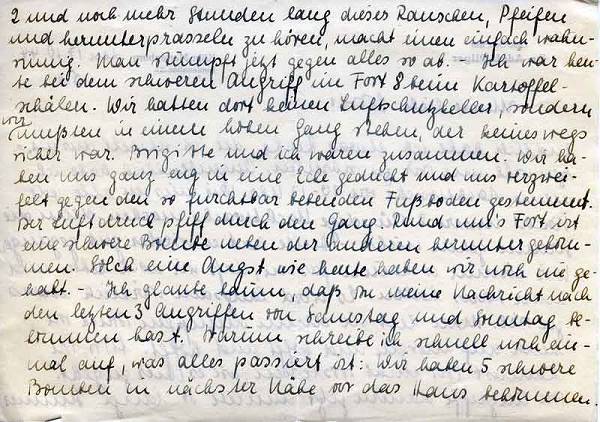 2 und noch mehr Stunden lang dieses Rauschen, Pfeifen
und herunterprasseln zu hören, macht einen einfach wahn-
sinnig. Man stumpft jetzt gegen alles so ab. – Ich war heu-
te bei dem schweren Angriff im Fort 8 beim Kartoffel-
schälen. Wir hatten dort keinen Luftschutzkeller, sondern
wir mußten in einem hohen Gang stehen, der keineswegs
sicher war. Brigitte und ich waren zusammen. Wir ha-
ben uns ganz eng in eine Ecke gedrückt und uns verzwei-
felt gegen den so furchtbar bebenden Fußboden gestemmt.
Der Luftdruck pfiff durch den Gang. Rund um's Fort ist
eine schwere Bombe neben der anderen heruntergekom-
men. Solch eine Angst wie heute haben wir noch nie ge-
habt. – Ich glaube kaum, daß Du meine Nachricht nach
den letzten 3 Angriffen von Samstag und Sonntag be-
kommen hast. Darum schreibe ich schnell noch ein-
mal auf, was alles passiert ist: Wir haben 5 schwere
Bomben in nächster Nähe vor das Haus bekommen.